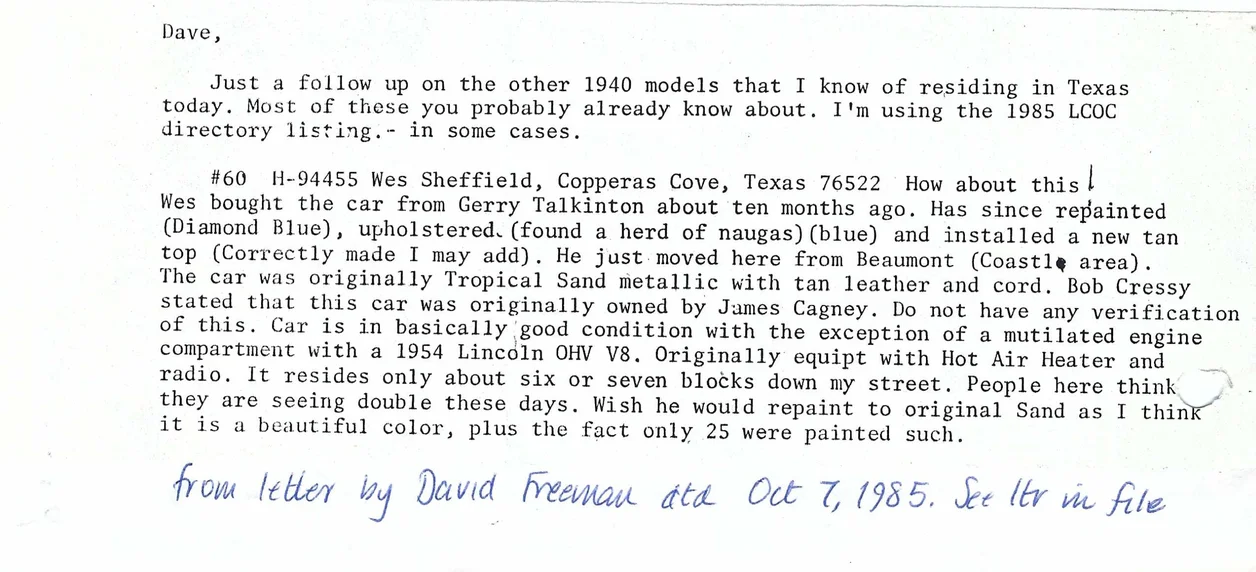 Dave,
Just a follow up on the other 1940 models that I know of residing in Texas
today. Most of these you probably already know about. I'm using the 1985 LCOC
directory listing.- in some cases.
#60 H-94455 Wes Sheffield, Copperas Cove, Texas 76522 How about this!
Wes bought the car from Gerry Talkinton about ten months ago. Has since repainted
(Diamond Blue), upholstered. (found a herd of naugas)(blue) and installed a new tan
top (Correctly made I may add). He just moved here from Beaumont (Coastle area).
The car was originally Tropical Sand metallic with tan leather and cord. Bob Cressy
stated that this car was originally owned by James Cagney. Do not have any verification
of this. Car is in basically good condition with the exception of a mutilated engine
compartment with a 1954 Lincoln OHV V8. Originally equipt with Hot Air Heater and
radio. It resides only about six or seven blocks down my street. People here think
they are seeing double these days. Wish he would repaint to original Sand as I think
it is a beautiful color, plus the fact only 25 were painted such.
from letter by David Freeman dtd Oct 7, 1985. See ltr in file